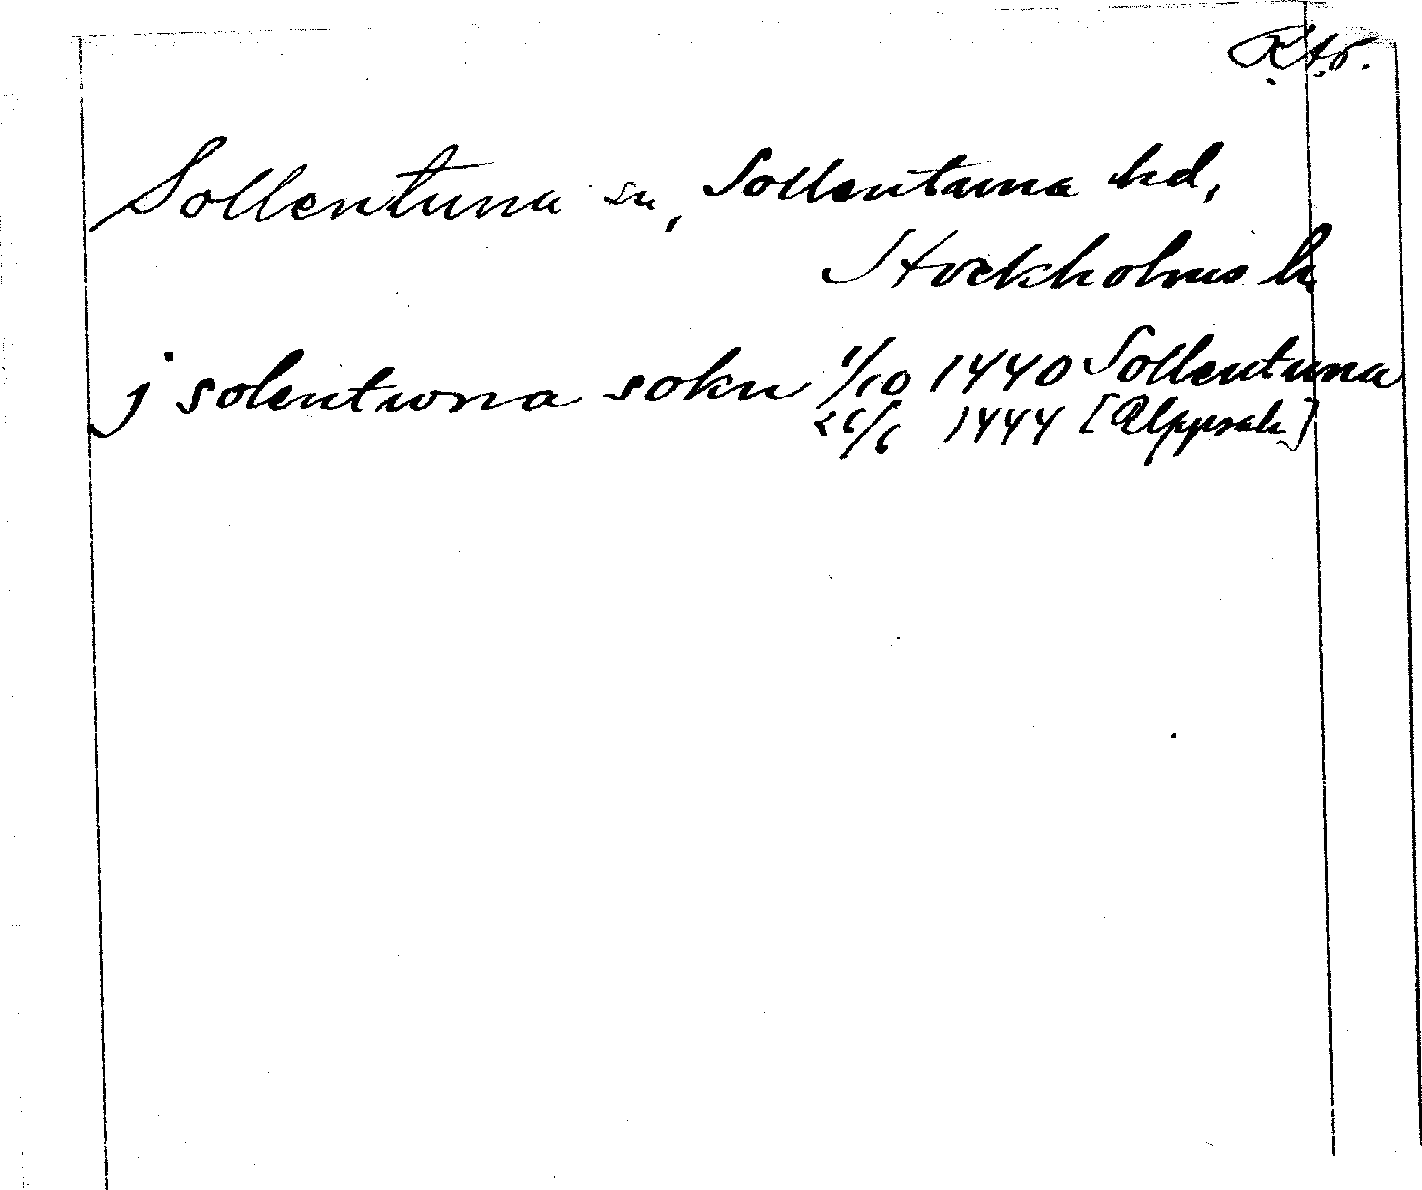 Sollentuna sn, Sollentuna hd,
Stockholms l.
j solentwna sokn 1/10 1440 Sollentuna
26/6 1444 [Uppsala]